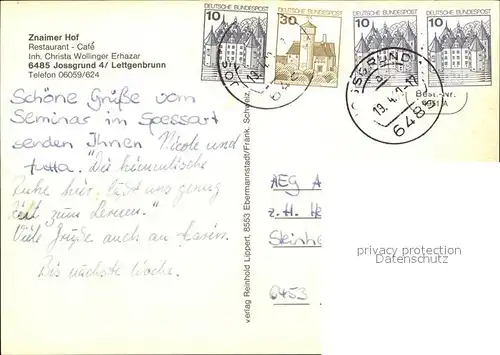 Znaimer Hof
Restaurant - Café
Inh. Christa Wollinger Erhazar
6485 Jossgrund 4/ Lettgenbrunn
Telefon 06059/624
DEUTSCHE BUNDESPOST
10
DEUTSCHE BUNDESPOST
30
DEUTSCHE BUNDESPOST
10
DEUTSCHE BUNDESPOST
10
JOSSGRUND
19.4.
648
Best.-Nr.
Schöne Grüße vom
Seminar im Spessart
senden Ihnen Nicole und
Jutta. "Die himmlische
Ruhe hier läßt uns genug
Zeit zum Lernen."
Viele Grüße auch an Karin.
Bis nächste Woche.
verlag Reinhold Lippert, 8553 Ebermannstadt/Fränk. Schweiz
AEG A
z. H. He
Steinhe
6453
privacy protection
Datenschutz